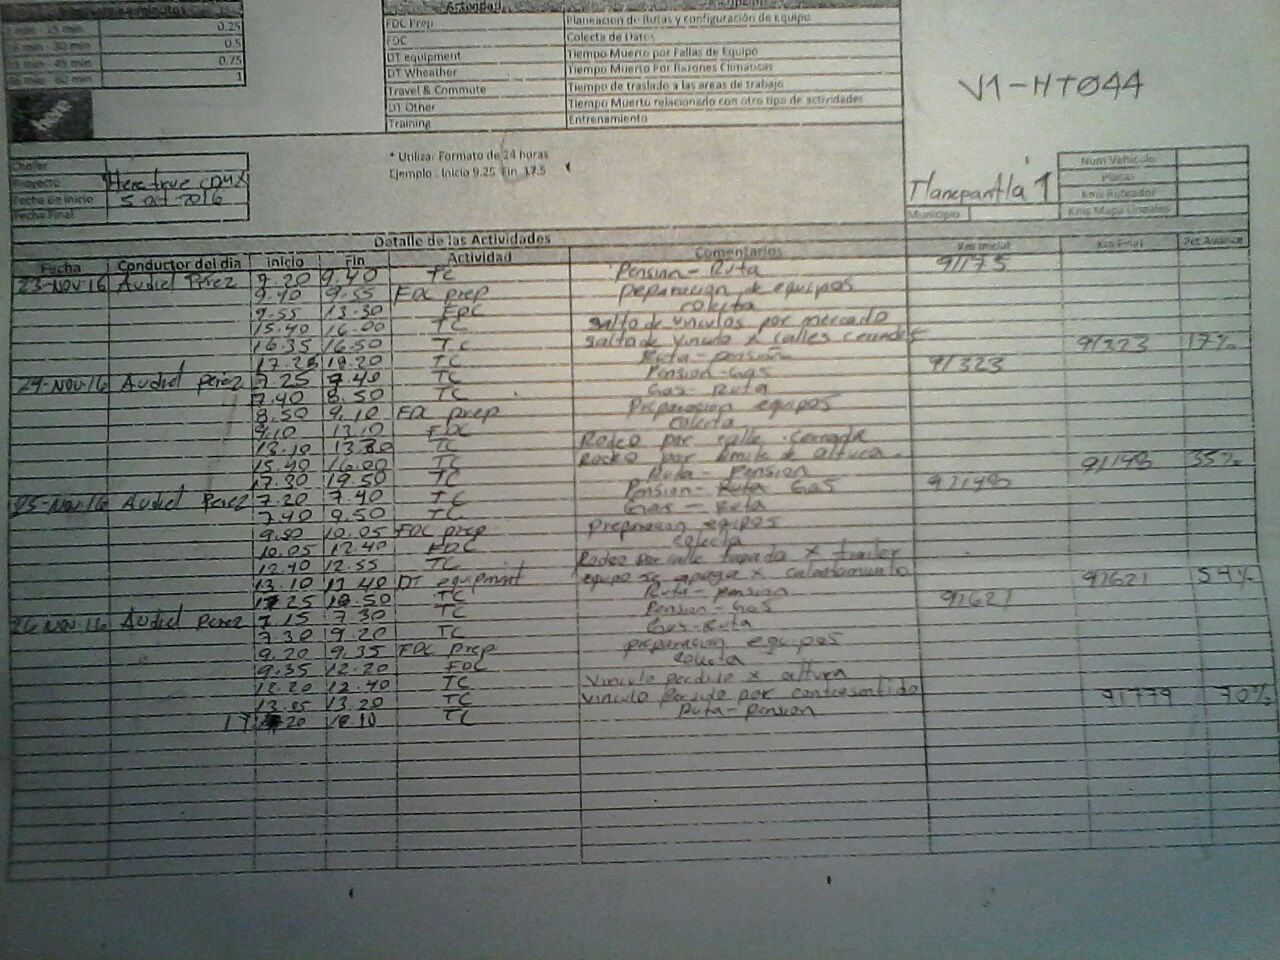 minutos
0.25
30 min 0.5
45 min 0.75
60 min 1
Actividad
FDC Prep Planeacion de Rutas y configuración de Equipo
FDC Colecta de Datos
DT equipment Tiempo Muerto por Fallas de Equipo
DT Wheather Tiempo Muerto Por Razones Climaticas
Travel & Commute Tiempo de traslado a las areas de trabajo
DT Other Tiempo Muerto relacionado con otro tipo de actividades
Training Entrenamiento
V1-HT044
* Utilizar Formato de 24 horas
Ejemplo : Inicio 9.25 Fin 17.5
Chofer
Proyecto Here true CDMX
Fecha de Inicio 5 oct 2016
Fecha Final
Tlanepantla 1
Municipio
Num Vehiculo
Placas
Kms Ruteador
Kms Mapa Lineales
Detalle de las Actividades
Fecha Conductor del dia Inicio Fin Actividad Comentarios Km Inicial Km Final Pct Avance
23-Nov-16 Audiel Pérez 7.20 9.40 TC Pension-Ruta 91175
9.40 9.55 FDC prep preparacion de equipos
9.55 13.30 FDC colecta
15.40 16.00 TC Salto de vinculos por mercado
16.35 16.50 TC Salto de vinculo x calles cerradas
17.25 18.20 TC Ruta-pensión 91323 17%
24-Nov-16 Audiel perez 7.25 7.40 TC Pension-Gas 91323
7.40 8.50 TC Gas-Ruta
8.50 9.10 FDC prep Preparacion equipos
9.10 13.10 FDC colecta
13.10 13.30 TC Rodeo por calle cerrada
15.40 16.00 TC Rodeo por limite de altura
17.30 19.50 TC Ruta-Pension 91493 35%
25-Nov-16 Audiel Perez 7.20 7.40 TC Pension-Ruta Gas 91493
7.40 9.50 TC Gas-Ruta
9.50 10.05 FDC prep Preparacion equipos
10.05 12.40 FDC colecta
12.40 12.55 TC Rodeo por calle tapada x trailer
13.10 17.40 DT equipment equipo se apaga x calentamiento
17.25 18.50 TC Ruta-pension 91621 54%
26-Nov-16 Audiel Perez 7.15 7.30 TC Pension-Gas 91621
7.30 9.20 TC Gas-Ruta
9.20 9.35 FDC Prep preparacion equipos
9.35 12.20 FDC colecta
12.20 12.40 TC Vinculo perdido x altura
13.05 13.20 TC Vinculo Perdido por contrasentido
17 20 18.10 TC Ruta-pension 91779 70%